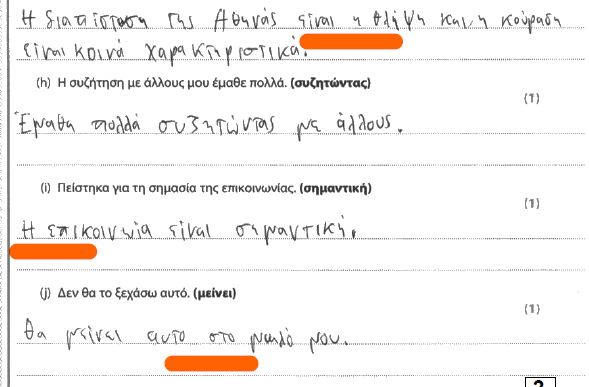 Η διαπίσταση της Αθηνάς είναι η θλήψη και η κούραση
είναι κοινά χαρακτηριστικά.
(h) Η συζήτηση με άλλους μου έμαθε πολλά. (συζητώντας)
(1)
Έμαθα πολλά συζητώντας με άλλους.
(i) Πείστηκα για τη σημασία της επικοινωνίας. (σημαντική)
(1)
Η επικοινωνία είναι σημαντική.
(j) Δεν θα το ξεχάσω αυτό. (μείνει)
(1)
θα μείνει αυτο στο μυαλό μου.
2